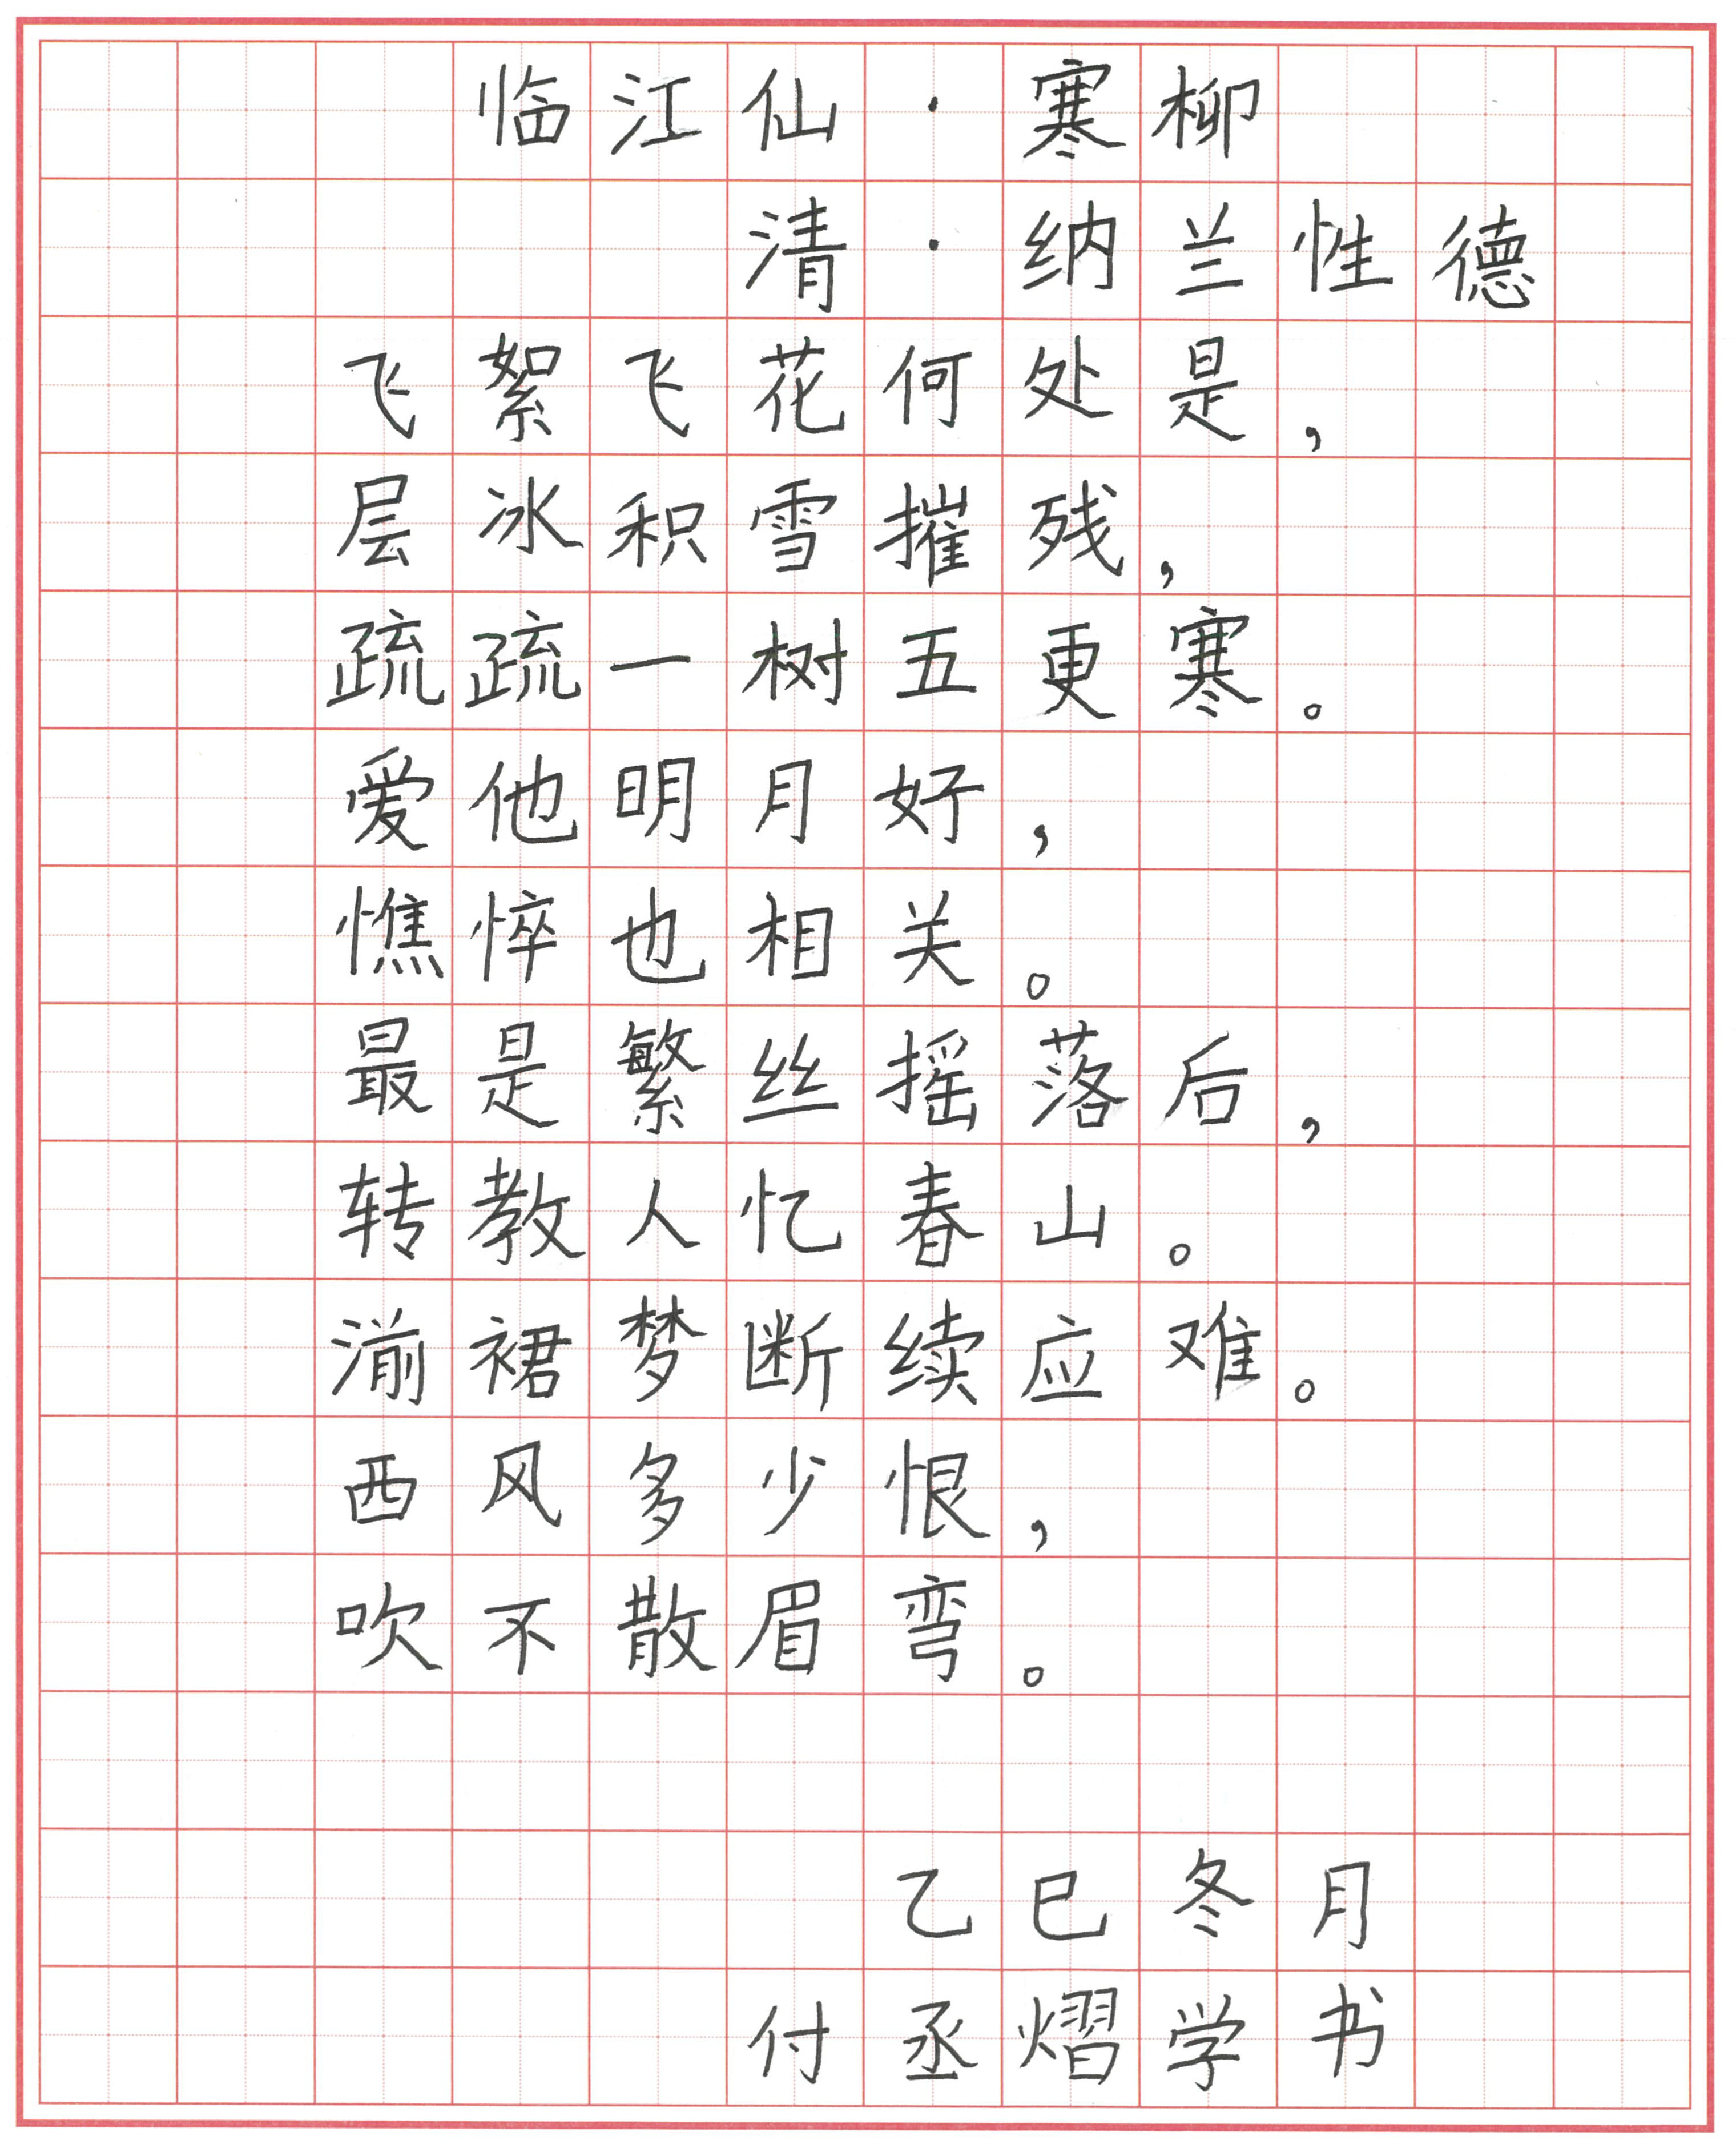 临江仙·寒柳
清·纳兰性德
飞絮飞花何处是，
层冰积雪摧残，
疏疏一树五更寒。
爱他明月好，
憔悴也相关。
最是繁丝摇落后，
转教人忆春山。
湔裙梦断续应难。
西风多少恨，
吹不散眉弯。
乙巳冬月
付丞熠学书